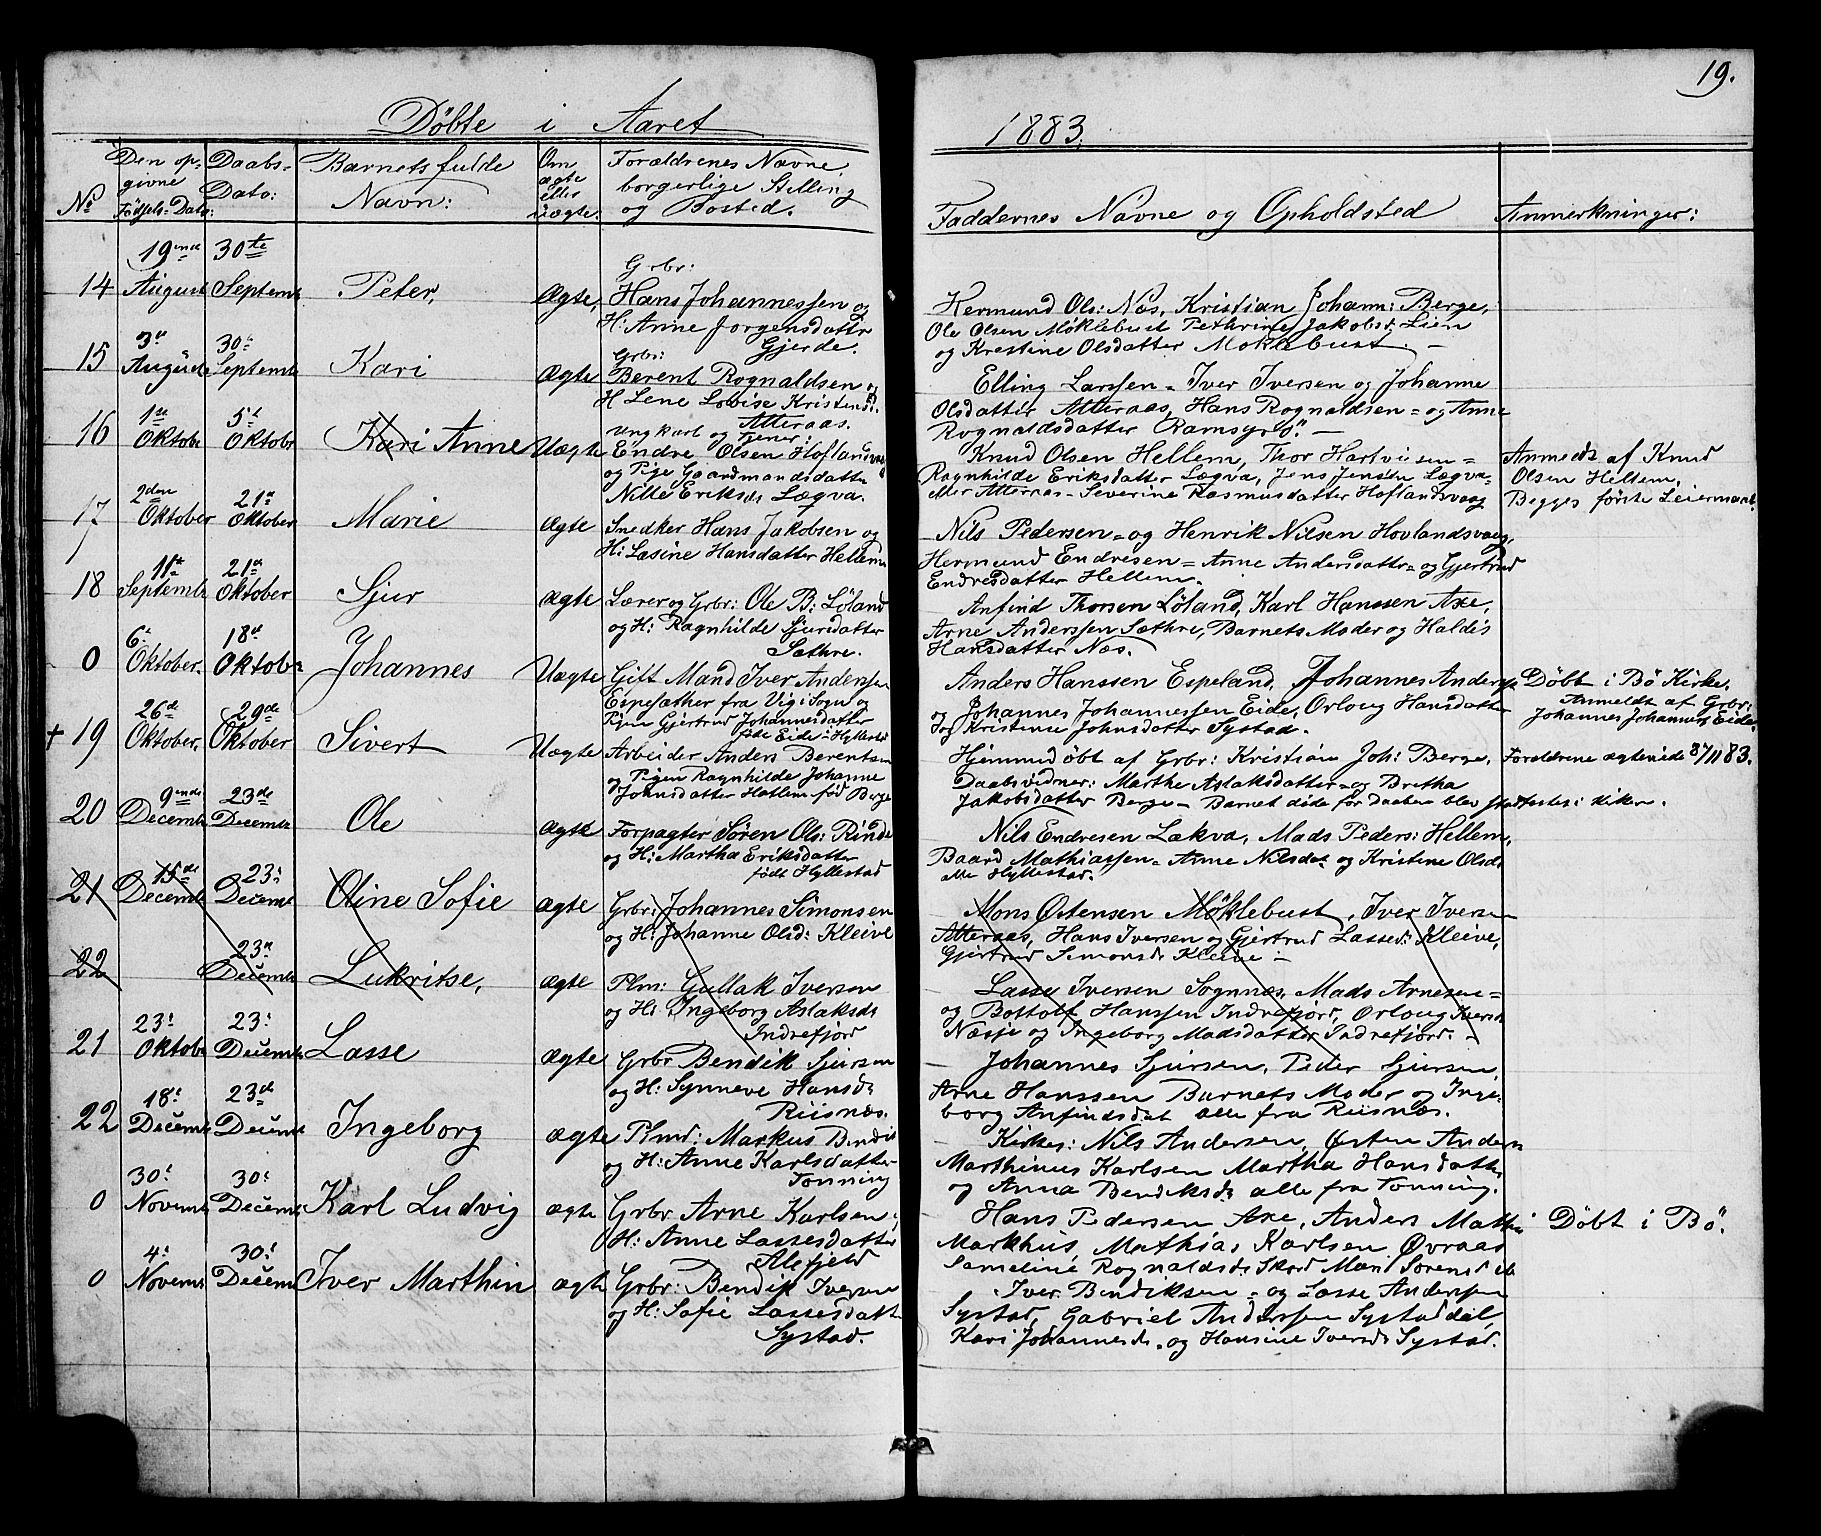 19.
Döbte i Aaret 1883.
No
Den op-
givne
Födsels-Dato:
Daabs-
Dato:
Barnets fulde
Navn:
Om
ægte
eller
uægte.
Forældrenes Navne
borgerlige Stilling
og Bosted.
Faddernes Navne og Opholdsted
Anmerkninger:
14
19nde
August
30te
Septemb
Peter,
Ægte,
Grbr:
Hans Johannessen og
H: Anne Jorgensdatter
Gjerde.
Hermund Ols: Næs, Kristian Johann: Berge,
Ole Olsen Möklebust Pethrine Jakobsd. Lien
og Krestine Olsdatter Möklebust. –
15
3die
August
30:
Septemb
Kari
Ægte
Grbr:
Berent Rognaldsen og
H Lene Lovise Kristensd.
Atteraas.
Elling Larssen = Iver Iversen og Johanne
Olsdatter Atteraas, Hans Rognaldsen = og Anne
Rognaldsdatter Ramsgrö. –
16
1ste
Oktobr
5t
Oktobr
Kari Anne
Uægte
Ungkarl og Tjener:
Endre Olsen Hoflandsvaag
og Pige Gaardmandsdatter
Nille Eriksd. Lægva.
Knud Olsen Hellem, Thor Hartvissen =
Ragnhilde Eriksdatter Lægva, Jens Jenssen Lægva =
Atteraas – Severine Rasmusdatter Hoflandsvaag
Anmeldt af Knud
Olsen Hellem,
Begges förste Leiermaal.
17
2den
Oktober
21de
Oktober
Marie
ægte
Snedker Hans Jakobsen og
H: Lasine Hansdatter Hellem
Nils Pedersen = og Henrik Nilsen Hovlandsvaag,
Hermund Endresen = Anne Andersdatter = og Gjertrud
Endresdatter Hellem.
18
11te
Septembr
21de
Oktober
Sjur
ægte
Lærer og Grbr: Ole B: Löland
og H: Ragnhilde Sjursdatter
Sæthre.
Anfind Thorsen Löland, Karl Hanssen Axe,
Arne Anderssen Sæthre, Barnets Moder og Haldis
Hansdatter Næs.
0
6:
Oktober.
18de
Oktobr
Johannes
Uægte
Gift Mand Iver Anderssen
Espesæther fra Vig i Sogn og
Pigen Gjertrud Johannesdatter
föd Eide = Hyllestad
Anders Hanssen Espeland, Johannes Anderss.
og Johannes Johannessen Eide, Orloug Hansdatter
og Kristine Johnsdatter Systad.
Döbt i Bö Kirke.
Anmeldt af Grbr:
Johannes Johannes. Eide.
+ 19
26de
Oktober.
29de
Oktober
Sivert
Uægte
Arbeider Anders Berentsen
og Pigen Ragnhilde Johanne
Johnsdatter Hatlem föd Berge
Hjemmedöbt af Grbr: Kristian Joh: Berge,
Daabsvidner: Marthe Aslaksdatter = og Bretha
Jakobsdatter Berge = Barnet döde för Daaben blev stadfestes i Kirken.
Forældrene ægteviede 8/11 83.
20
9nde
Decembr
23de
Decembr
Ole
ægte
Forpagter Sören Ols: Rinde
og H: Martha Eriksdatter
födt Hyllestad
Nils Endresen Lækva, Mads Peders: Hellem,
Baard Mathiassen = Anne Nilsdat og Kristine Olsd.
alle Hyllestad.
21
15de
Decembr
23:
Decemb
Oline Sofie
ægte
Grbr: Johannes Simonsen
og H: Johanne Olsd: Kleive
Mons Östensen Möklebust, Iver Iversen
Atteraas, Hans Iversen og Gjertrud Lassed: Kleive,
Gjertrud Simonsd. Kleive =
22
23de
Decembr
Lukritse,
ægte
Plm: Gullak Iversen
og H: Ingeborg Aslaksd:
Indrefjord
Lasse Iversen Sognnes, Mads Arnesen =
og Bottolf Hanssen Indrefjord, Orloug Iversd.
Næsje og Ingeborg Madsdatter Indrefjord. –
21
23:
Oktobr
23:
Decembr
Lasse
ægte
Grbr Bendik Sjursen
og H: Synneve Hansd:
Riisnæs.
Johannes Sjursen, Peder Sjursen,
Arne Hanssen Barnets Moder og Inge-
borg Anfindsdat alle fra Riisnæs.
22
18:
Decemb
23de
Decemb
Ingeborg
ægte
Plmd: Markus Bendik
og H: Anne Karlsdatter
Tonning
Kirkes: Nils Andersen, Östen Andersen
Marthinus Karlsen Martha Hansdatter
og Anna Bendiksd: alle fra Tonning.
0
30:
Novemb
30:
Decembr
Karl Ludvig
ægte
Grbr Arne Karlsen
H: Anne Lassesdatter
Alefjeld
Hans Pedersen Axe, Anders Mathi
Markhus, Mathias Karlsen Övraas
Sameline Rognaldsd.
Döbt i Bö.
0
4:
Novemb
30:
Decemb
Iver Marthin
ægte
Grbr: Bendik Iversen
og H: Sofie Lassesdatt
Systad.
Iver Bendiksen = og Lasse Anderssen
Systad, Gabriel Anderssen Systaddal,
Kari Johannesd. = og Hansine Iversd: Systad.